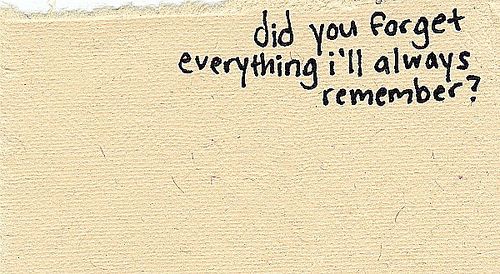 did you forget
everything i'll always
remember?